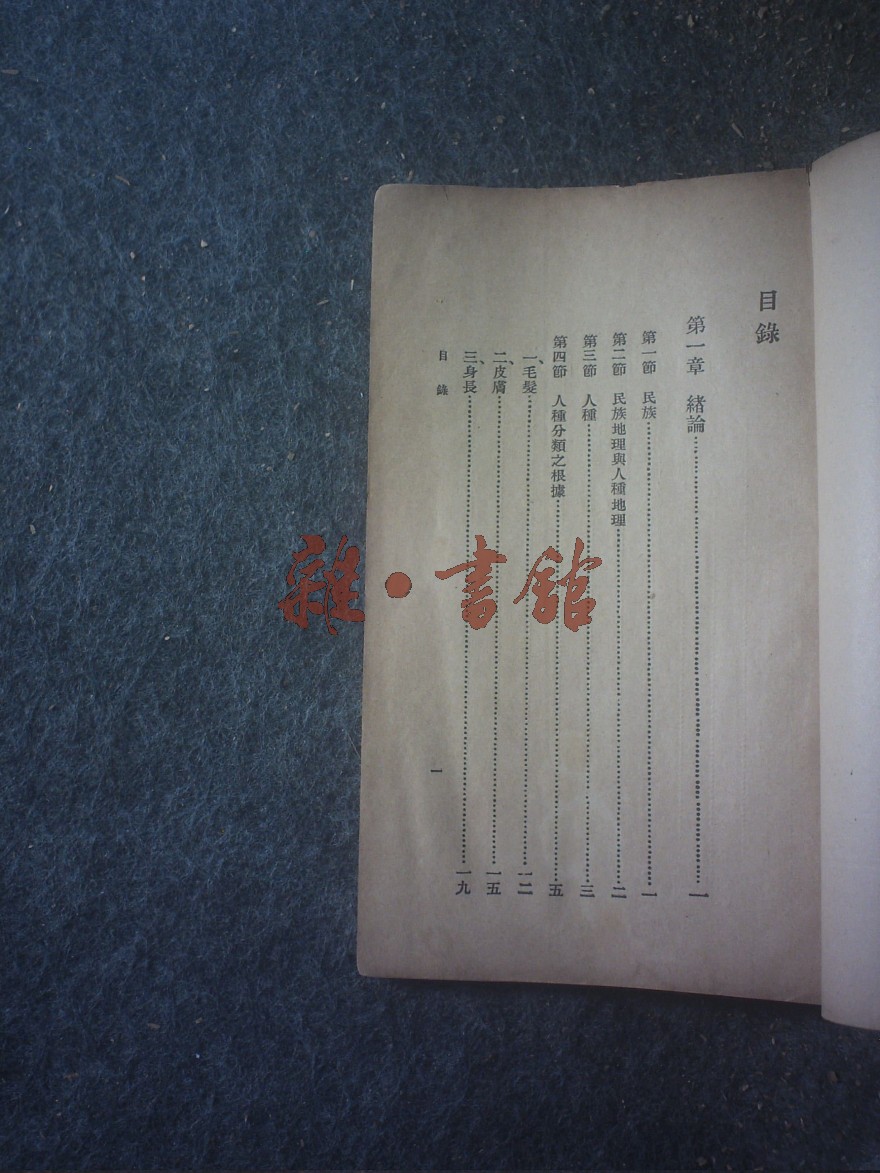 目錄
第一章　緒論……一
第一節　民族……一
第二節　民族地理與人種地理……二
第三節　人種……三
第四節　人種分類之根據……五
一、毛髮……一二
二、皮膚……一五
三、身長……一九
目錄
一
雜·書館